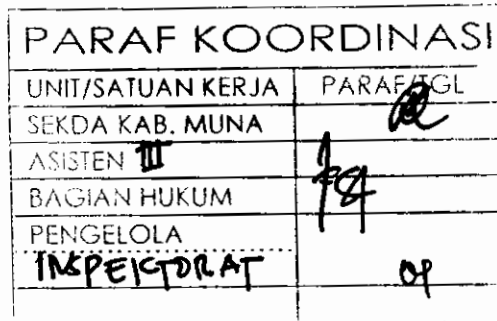 PARAF KOORDINASI
UNIT/SATUAN KERJA PARAF/TGL
SEKDA KAB. MUNA
ASISTEN III
BAGIAN HUKUM
PENGELOLA
INSPEKTORAT